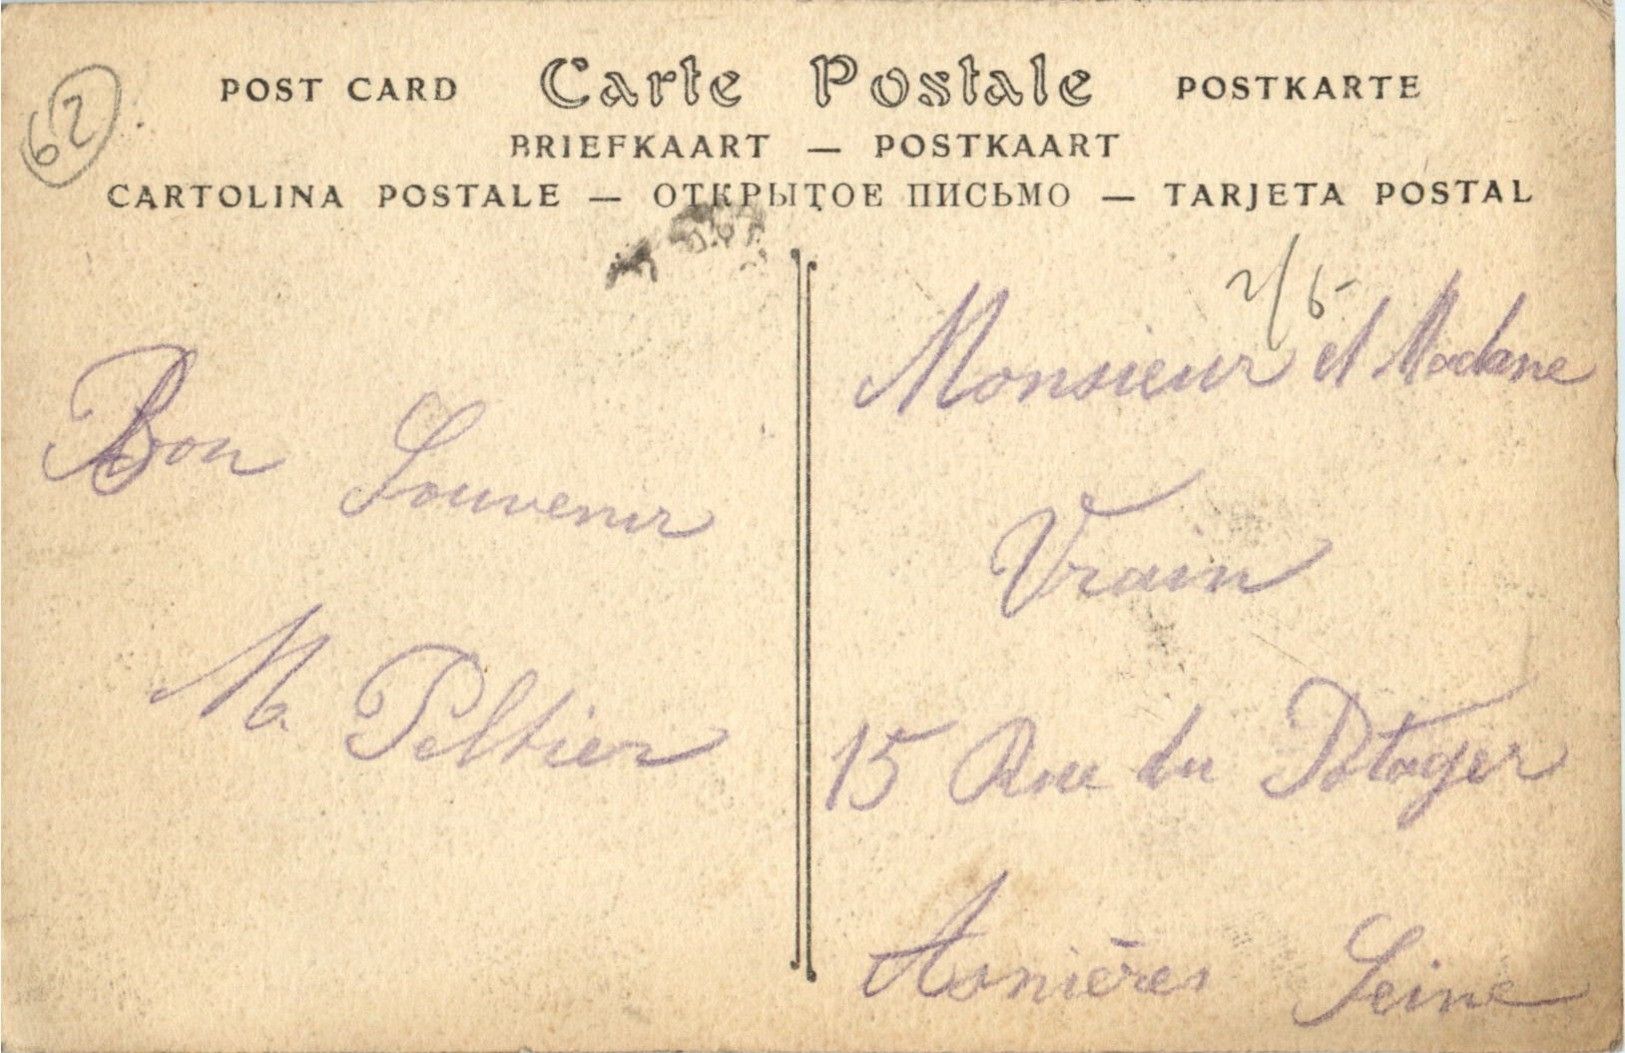 62
POST CARD Carte Postale POSTKARTE
BRIEFKAART — POSTKAART
CARTOLINA POSTALE — ОТКРЫТОЕ ПИСЬМО — TARJETA POSTAL
Bon Souvenir
M. Peltier
2/5
Monsieur et Madame
Vrain
15 Rue du Potager
Asnières Seine